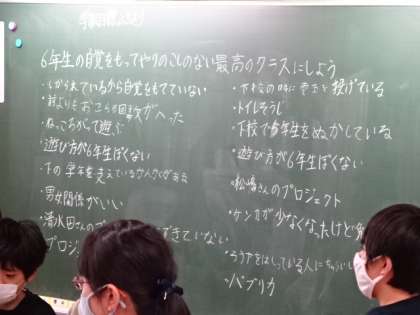 学級目標ふり
6年生の自覚をもってやりのこしのない最高のクラスにしよう
・しかられているから自覚をもてていない
・前よりもおこられる回数がへった
・ねっころがって遊ぶ
・遊び方が6年生ぽくない
・下の学年を支えている
・男女関係がいい
・清水田さんの
できていない
プロジ
・下校の時に
を投げている
・トイレそうじ
・下校で
年生をぬかしている
・遊び方が6年生ぽくない
・松嶋さんのプロジェクト
・ケンカが少なくなったけど
・ろうかをはしっている人に
・パプリカ